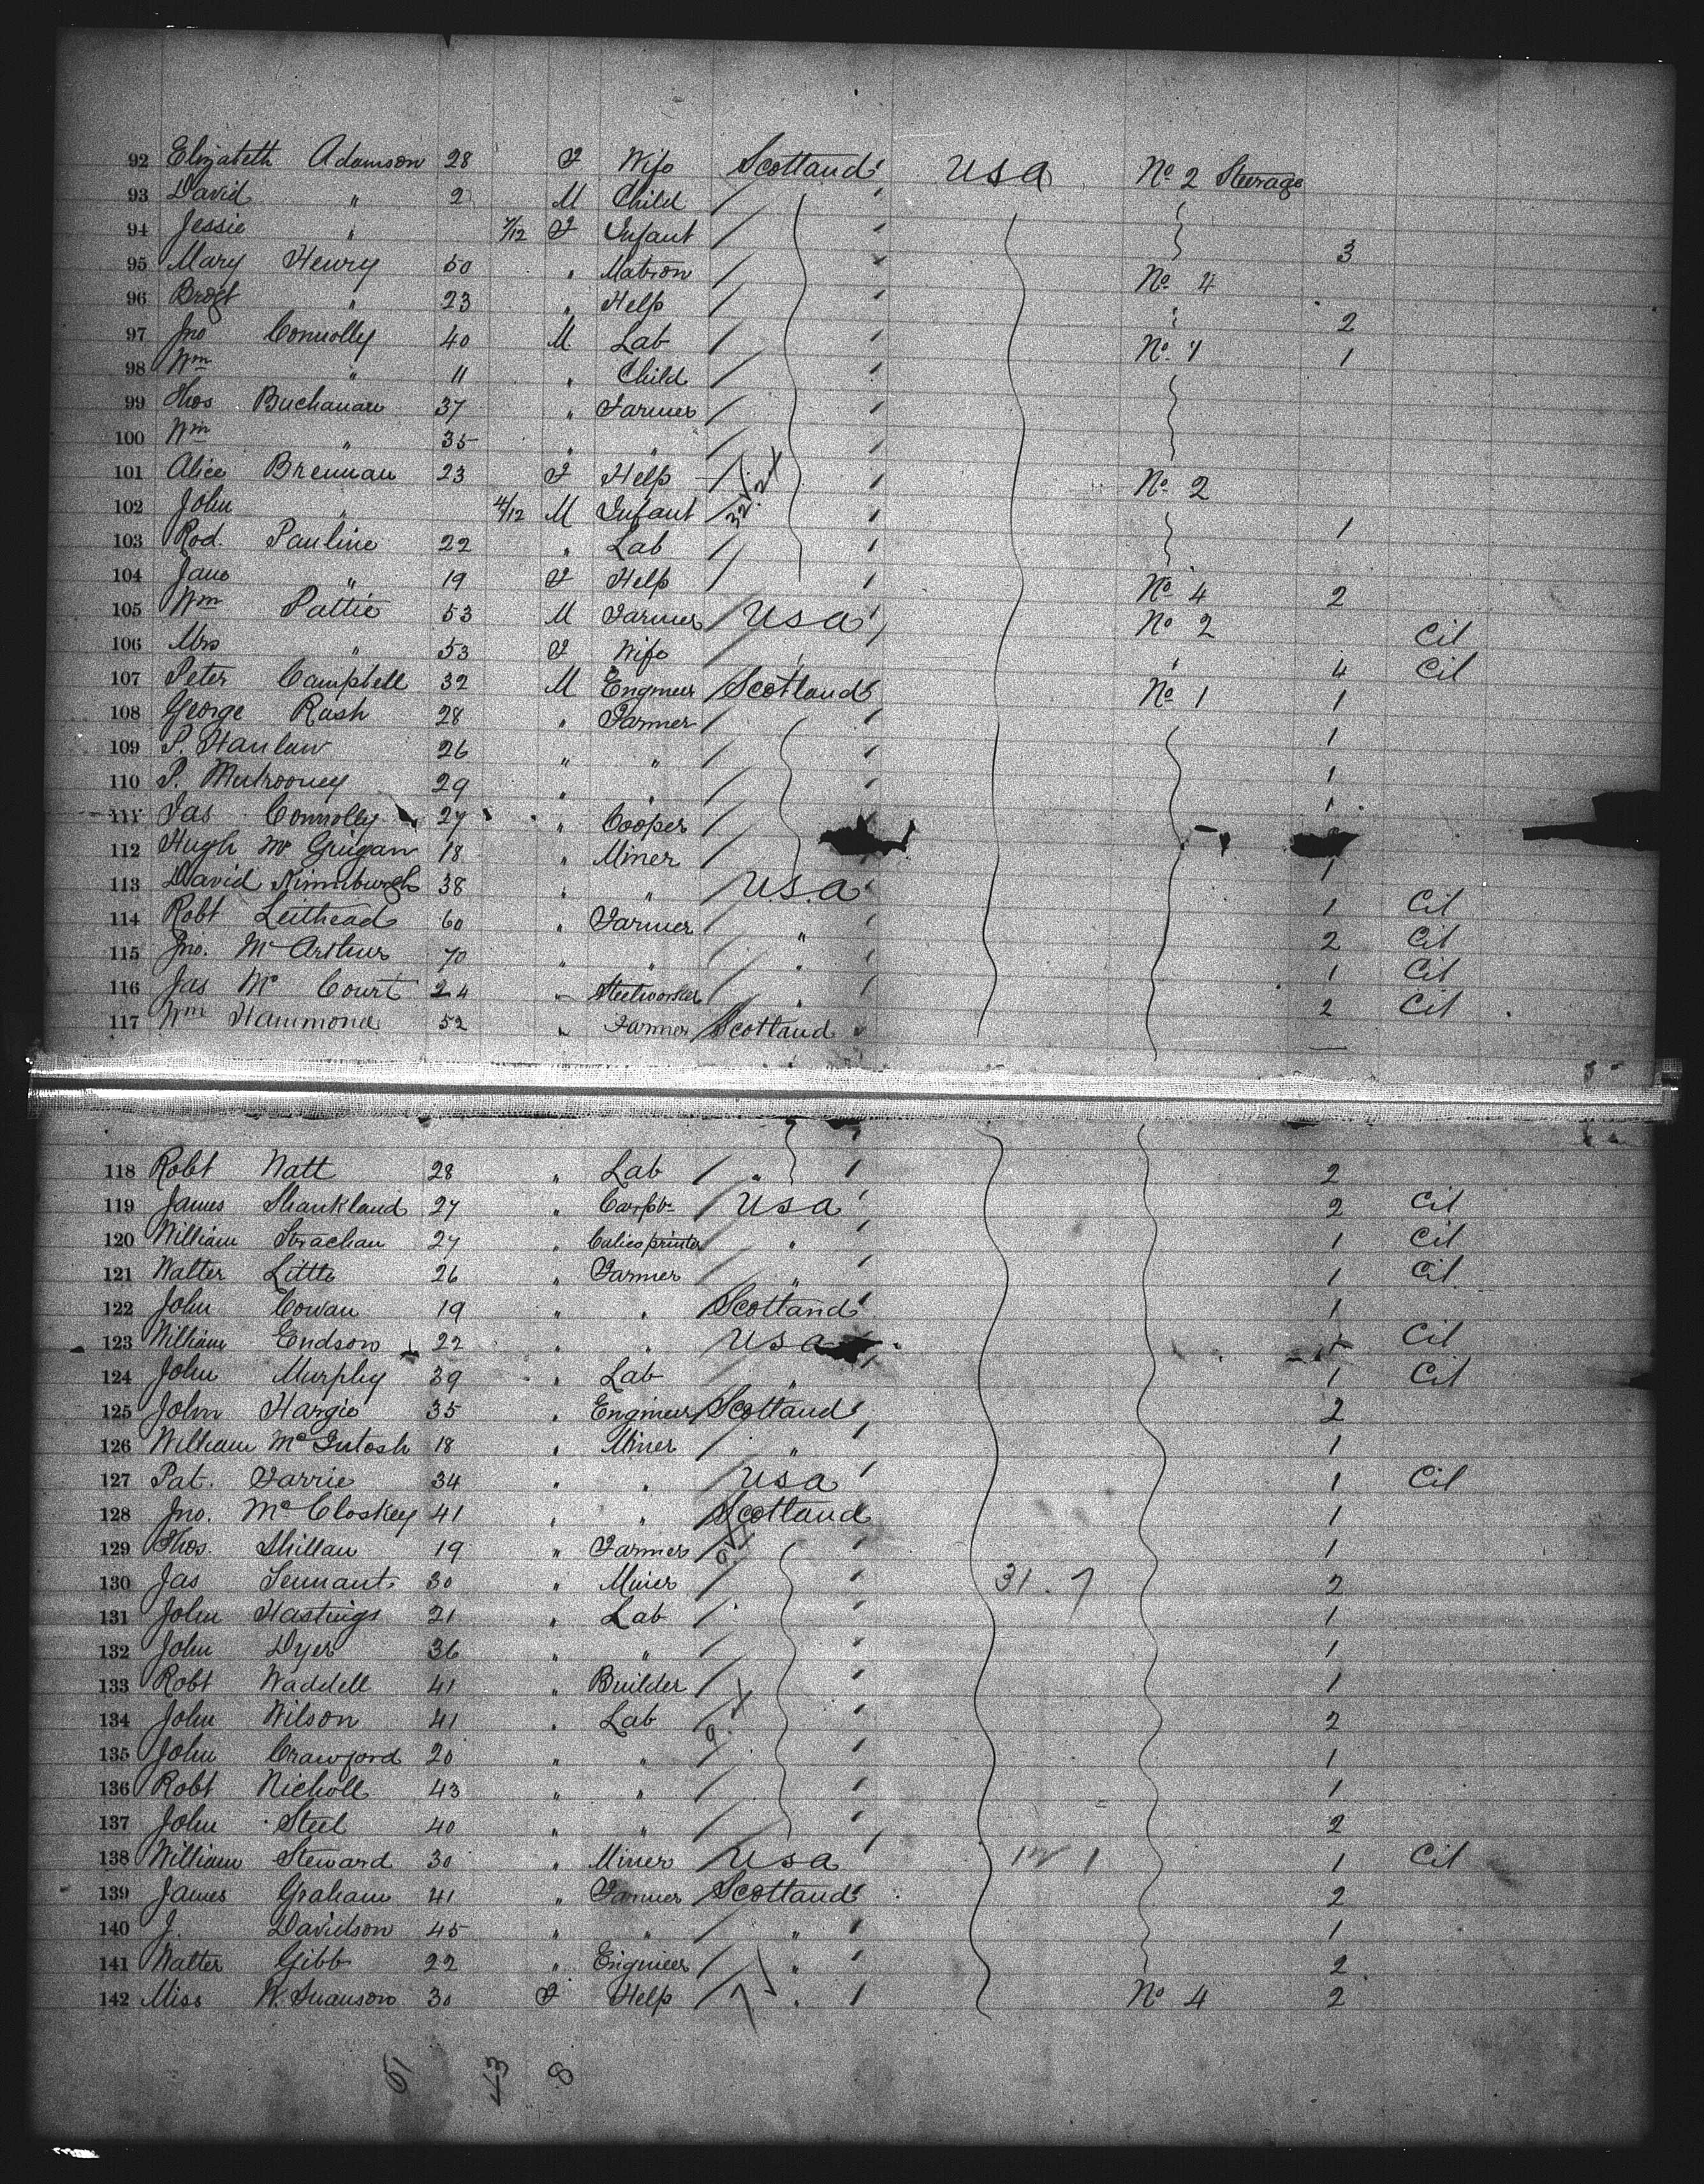 92 Elizabeth Adamson 28 F Wife Scotland USA No 2 Steerage
93 David " 2 M Child
94 Jessie " 7/12 F Infant 3
95 Mary Henry 50 " Matron No 4
96 Bridgt " 23 " Help 2
97 Jno Connolly 40 M Lab No 1 1
98 Wm " 11 " Child
99 Thos Buchanan 37 " Farmer
100 Wm " 35 " "
101 Alice Brennan 23 F Help No 2
102 John " 4/12 M Infant 1
103 Rod. Pauline 22 " Lab
104 Jane " 19 F Help No 4 2
105 Wm Pattie 53 M Farmer USA No 2 Cit
106 Mrs " 53 F Wife " " 4 Cit
107 Peter Campbell 32 M Engineer Scotland No 1 1
108 George Rush 28 " Farmer 1
109 P. Hanlan 26 " " 1
110 P. Mulrooney 29 " " 1
111 Jas Connolly 27 " Cooper
112 Hugh Mc Guigan 18 " Miner 1
113 David Kinniburgh 38 " " U.S.A 1 Cit
114 Robt Leithead 60 " Farmer " 2 Cit
115 Jno. Mc Arthur 70 " " " 1 Cit
116 Jas Mc Court 24 " Steelworker " 2 Cit
117 Wm Hammond 52 " Farmer Scotland
118 Robt Watt 28 " Lab " 2
119 James Shankland 27 " Carptr USA 2 Cit
120 William Strachan 27 " Calico printer " 1 Cit
121 Walter Little 26 " Farmer " 1 Cit
122 John Cowan 19 " " Scotland 1
123 William Endson 22 " " USA 1 Cit
124 John Murphy 39 " Lab " 1 Cit
125 John Hargie 35 " Engineer Scotland 2
126 William McIntosh 18 " Miner " 1
127 Pat. Farrie 34 " " USA 1 Cit
128 Jno. McCloskey 41 " " Scotland 1
129 Thos. Shillan 19 " Farmer 1
130 Jas Tennant 30 " Miner 31.7 2
131 John Hastings 21 " Lab 1
132 John Dyer 36 " " 1
133 Robt Waddell 41 " Builder 1
134 John Wilson 41 " Lab 2
135 John Crawford 20 " " 1
136 Robt Nicholl 43 " " 1
137 John Steel 40 " " 2
138 William Steward 30 " Miner USA 1 Cit
139 James Graham 41 " Farmer Scotland 2
140 J. Davidson 45 " " " 1
141 Walter Gibb 22 " Engineer " 2
142 Miss W. Swanson 30 F Help " No 4 2
51 43 8